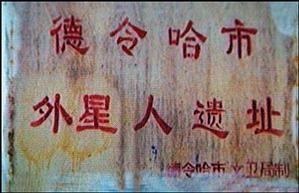 德令哈市
外星人遗址
德令哈市文卫局制